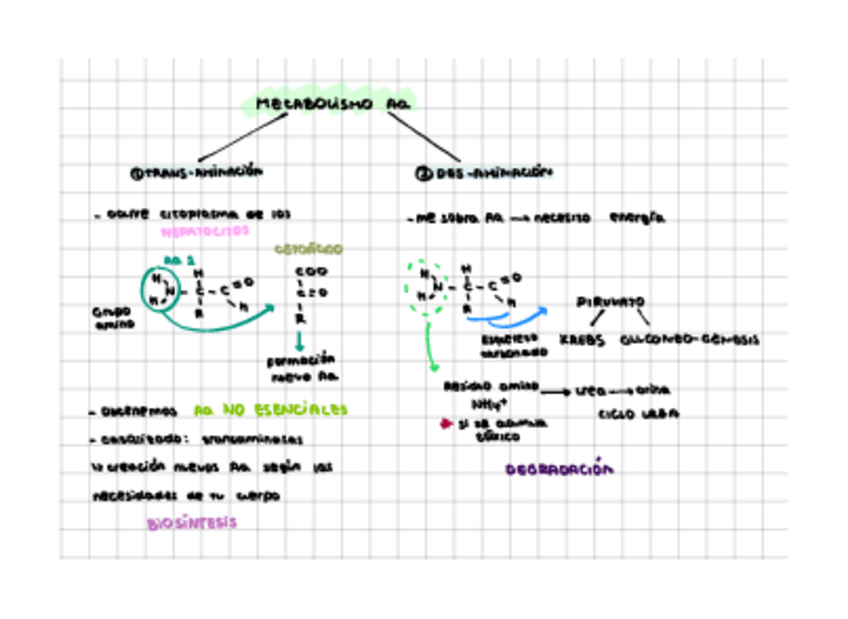 METABOLISMO AA
① TRANS-AMINACIÓN
- ocurre citoplasma de los
HEPATOCITOS
CETOÁCIDO
AA 1
H
H
N - C - C = O
H
R
H
Grupo
amino
COO
C=O
R
Formación
nuevo AA
- obtenemos AA NO ESENCIALES
- catalizado: transaminasas
↳ creación nuevos AA según las
necesidades de tu cuerpo
BIOSÍNTESIS
② DES-AMINACIÓN
- me sobra AA → necesito energía
H
H
N - C - C = O
H
R
H
Esqueleto
carbonado
PIRUVATO
KREBS GLUCONEO-GÉNESIS
Residuo amino → urea → orina
NH4+
CICLO UREA
si se acumula
tóxico
DEGRADACIÓN